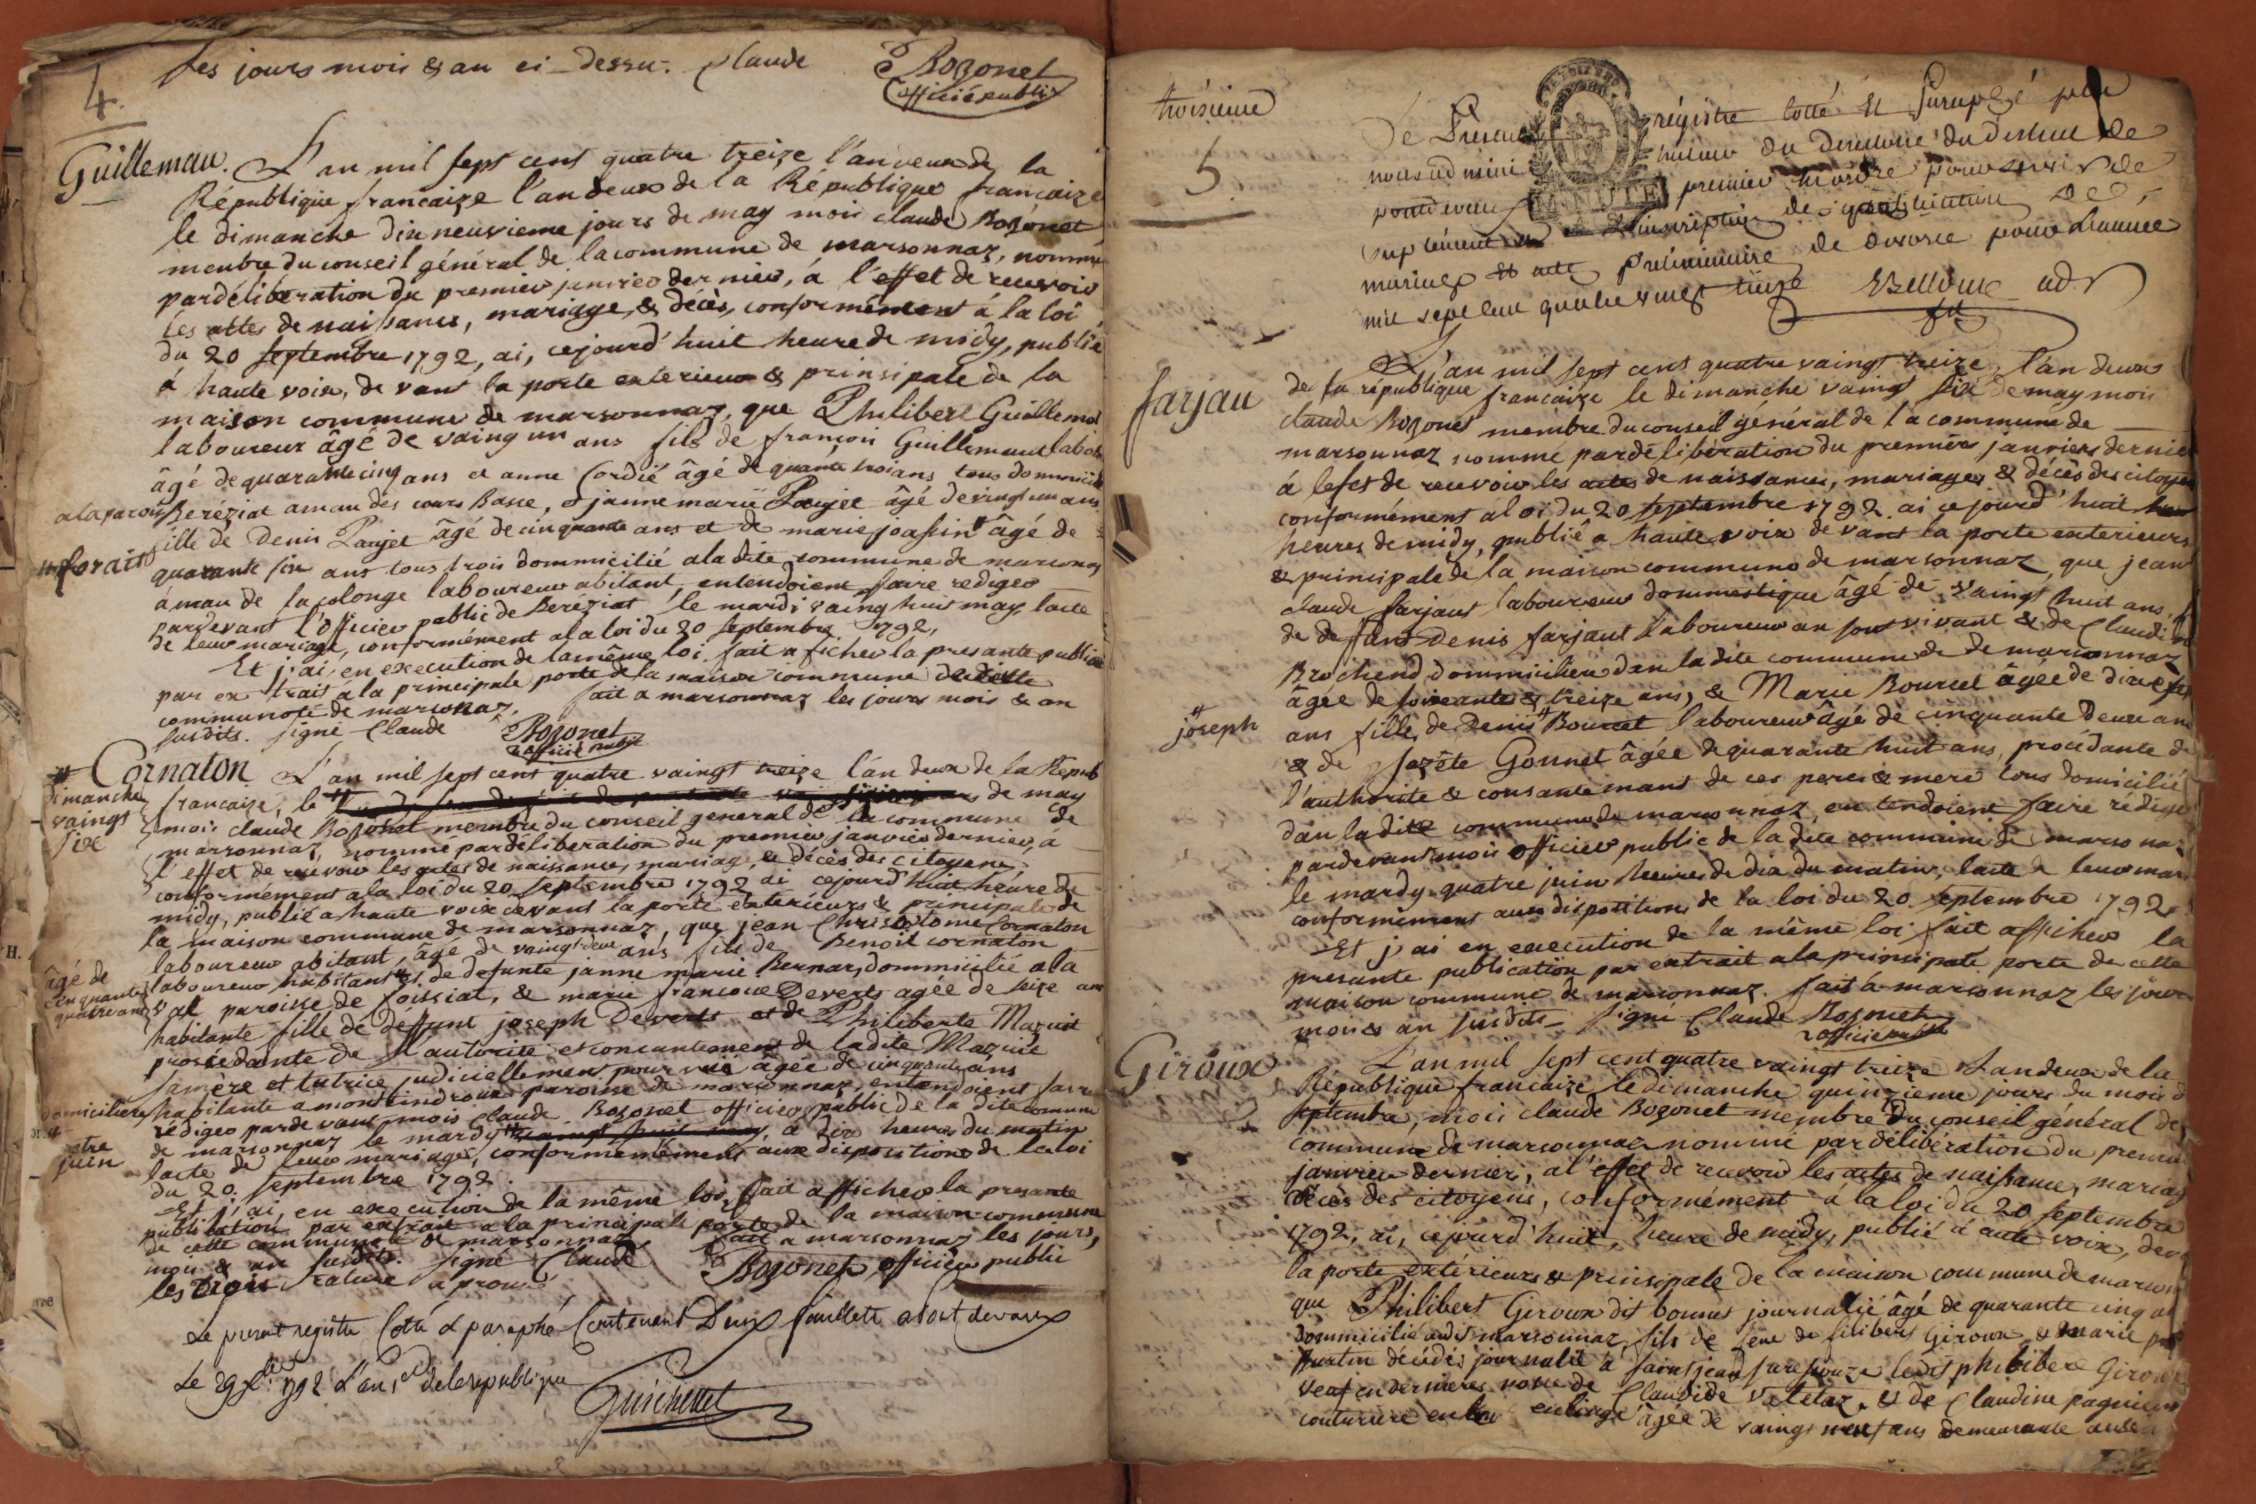 4.
Les jours mois & an ci-dessu. Claude Bozonet
officié public
Guillemau. L'an mil sept cent quatre treize l'an deux de la
République francaize l'an deux de la République francaize
le dimanche dix neuvieme jours de may mois claude Bozonet
menbre du conseil général de la commune de marsonnaz, nommé
par déliberation du premier janvier dernier, à l'effet de recevoir
les attes de naissances, mariage, & décès, conformément à la loi
du 20 septembre 1792, ai, cejourd'huit heure de midy, publié
à haute voix, de vant la porte exterieur & prinsipale de la
maison commune de marsonnaz, que Philibert Guillemau
laboureur âgé de vaing un ans fils de françoi Guillemaud
âgé de quarante cinq ans et anne Cordié âgé de quarante trois ans tous dommicilié
a la paroi Béréziat amau des cours Basse, & janne marie Paujet âgé de vingt un ans
fille de Denis Paujet âgé de cinquante ans et de marie joassin âgé de
quarante six ans tous trois dommicilié a la dite commune de marsonnaz
amau de la colonge laboureur abitant, entendoient faire rediger
pardevant l'officier public de Béréziat le mardi vaing huit may lacte
de leur mariage, conformément a la loi du 20 septembre 1792,
Et j'ai en execution de la même loi, fait aficher la presante publica
par ex trait a la principale porte de la maison commune de cette
communoté de marsonnaz. fait a marsonnaz les jours mois & an
susdits. signé Claude Bozonet
officié public
Cornaton L'an mil sept cent quatre vaingt treize l'an deux de la Repub
dimanche
vaingt
six
francaize, le de may
mois claude Bozonet membre du conseil general de la commune de
marsonnaz, nommé par déliberation du premier janvier dernier, à
l'effet de recevoir les actes de naissances, mariage, & décès des citoyens
conformement a la loi du 20 septembre 1792 ai cejourd'huit heure de
midy, publié a haute voix devant la porte extérieurs & principale de
la maison commune de marsonnaz, que jean Chrisostome Cornaton
laboureur abitant, âgé de vaingt deux ans fils de Benoit cornaton
âgé de
cinquante
quatre ans
laboureur habitant & de defunte janne marie Bernar, dommicilié a la
val paroisse de foissiat, & marie francoise Deverts agée de seize ans
habitante fille de déffunt joseph Deverts et de Philiberte Mazuit
prossedante de l'autorité et consantement de ladite Mazuit
samere et tutrice judiciellement pourvue âgée de cinquante ans
domiciliere
habitante a mont paroisse de marsonnaz, entendoient faire
rédiger pardevant mois Claude Bozonet officier public de la dite comune
juin
de marsonnaz le mardy a dix heures du matin
lacte de leur mariage, conformentement aux dispositions de la loi
du 20 septembre 1792
Et j'ai, en execution de la même loi, fait afficher la presante
publication par extrait a la principale porte de la maison commune
de cette commune de marsonnaz fait a marsonnaz les jours,
mois & an susdits. signé Claude Bozonet officier public
les trois rature aprouvé
Le present registre Coté & paraphé Contenant Deux feuillets
Le 29 Xbre 1792 L'an 1er de la republique
Guichellet
troisieme
5
De Present registre cotté & paraphé par
nous administrateur du Directoire du District de
premier pour servir de
suplément inscription de De
mariages & acte préliminaire de divorce pour l'année
mil sept cent quatre vingt treize
farjau L'an mil sept cent quatre vaingt treize, l'an deux
de la république francaize le dimanche vaingt six de may mois
claude Bozonet membre du conseil général de la commune de
marsonnaz nommé par délibération du première janviers dernier
à lefet de recevoir les actes de naissances, mariages & décès des citoyens
conformément a loi du 20 septembre 1792. ai ce jourd'huit
heures de midy, publié a haute voix devant la porte exterieurs
& principale de la maison commune de marsonnaz, que jean
claude farjaut laboureur dommestique âgé de vaingt huit ans
de deffunt Denis farjaut laboureur an son vivant & de Claudine
Brochend dommiciliee dan la dite commune de de marsonnaz
âgée de soixante & treize ans, & Marie Bourcet âgée de
joseph
ans fille de Denis Bourcet laboureur âgé de cinquante deux ans
& de jozete Gonnet âgée de quarante huit ans, procédante de
l'authorité & consantemant de ces perci & mere tous domicilié
dan la dite commune de marsonnaz, en tendoient faire redigé
pardevant mois officier public de la dite commune de marsonnaz
le mardy quatre juin heures de dix du matin, lacte de leur mar
conformément aux dispositions de la loi du 20 septembre 1792.
Et j'ai en execution de la même loi fait afficher la
presante publication par extrait a la principale porte de cette
maison commune de marsonnaz. fait à marsonnaz les jour
mois & an susdits signé Claude Bozonet
officié public
Giroux L'an mil sept cent quatre vaingt treize L'an deux de la
République francaize, le dimanche quinzieme jours du mois d
septembre, mois claude Bozonet membre du conseil général de
commune de marsonnaz nommé par délibération du premié
janvier dernier, a l'effet de recevoir les actes de naissance, mariag
décès des citoyens, conformément a la loi du 20 septembre
1792, ai, cejourd'huit, heure de midy, publié à aute voix, dev
la porte extérieurs & principale de la maison commune de marson
que Philibert Giroux dit bonnet journalié âgé de quarante cinq an
dommicilié audit marsonnaz, fils de feue de filibert Giroux & marie
décédés journalié a saint jean le dit philibert Giroux
veuf en dernieres nosse de Claudide & de Claudine
couturiere âgée de vaingt neuf ans demeurante